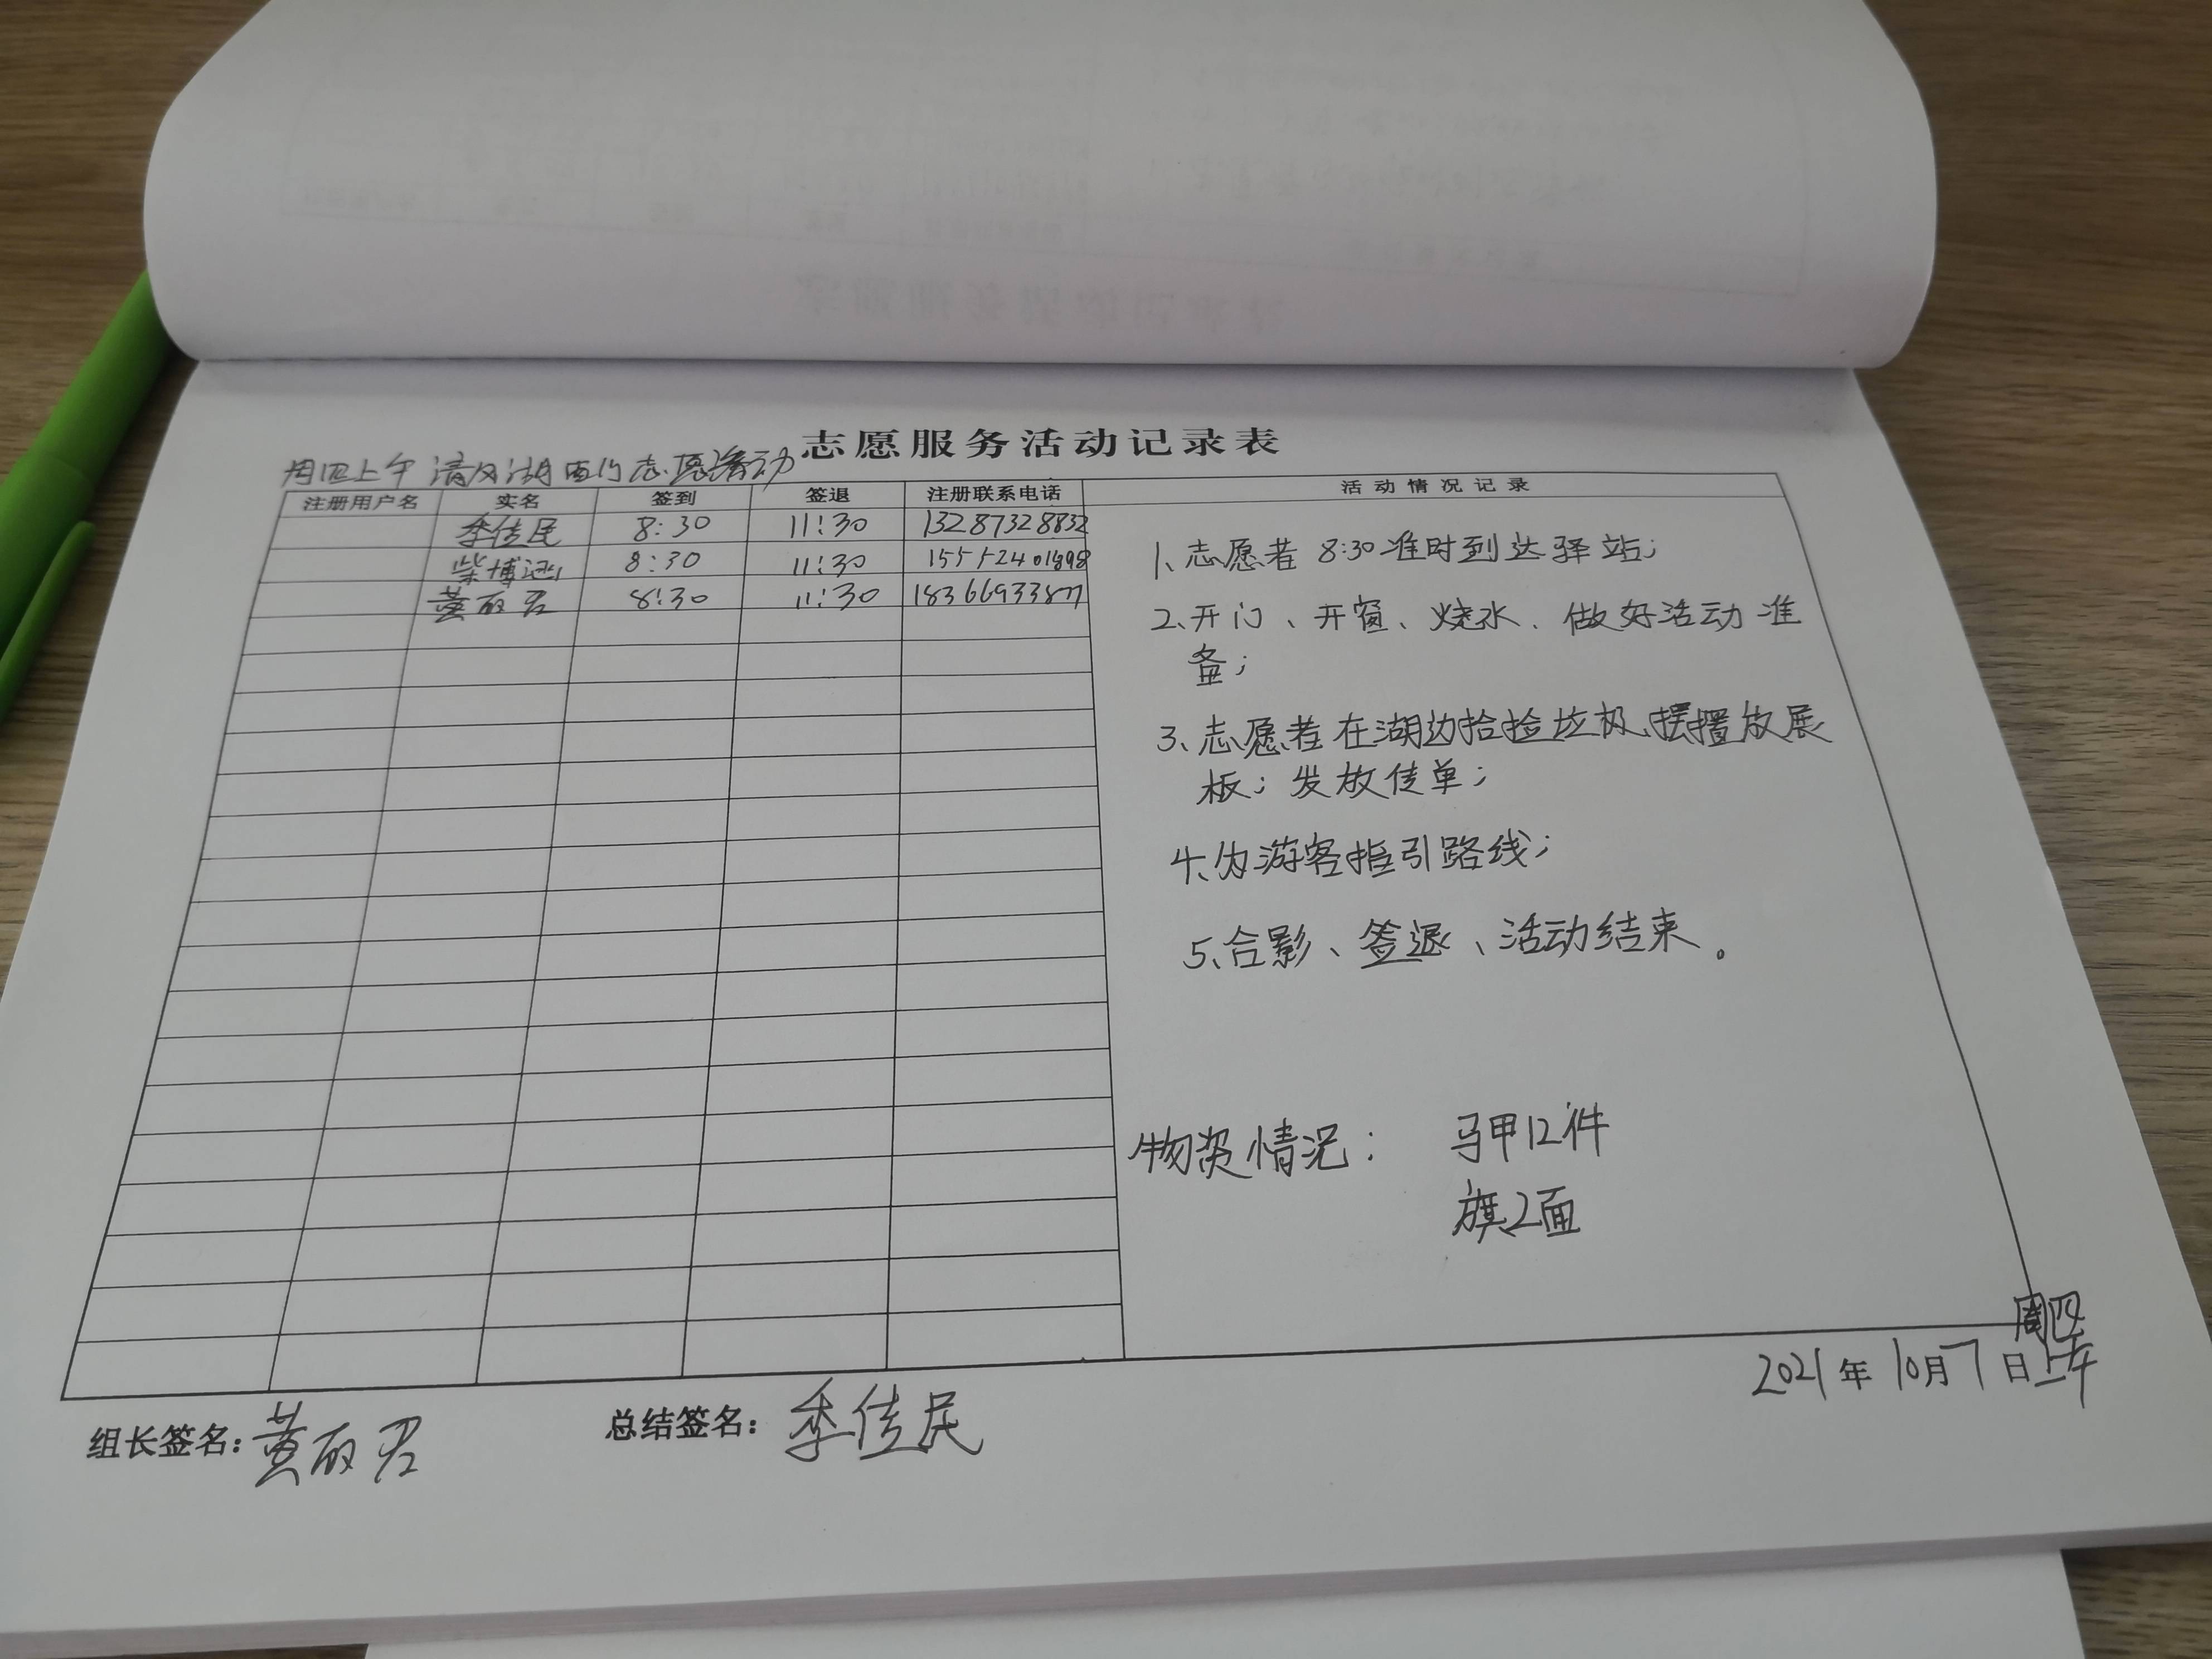 志愿服务活动记录表
周四上午 清风湖西门志愿活动
注册用户名 实名 签到 签退 注册联系电话 活动情况记录
季佳民 8:30 11:30 13287328832
柴博涵 8:30 11:30
黄丽君 8:30 11:30 18366933877
1、志愿者 8:30准时到达驿站;
2、开门、开窗、烧水、做好活动准
备;
3、志愿者在湖边拾捡垃圾、摆放展
板;发放传单;
4、为游客指引路线;
5、合影、签退、活动结束。
物资情况: 马甲12件
旗2面
周四
2021年10月7日上午
组长签名:黄丽君 总结签名:季佳民